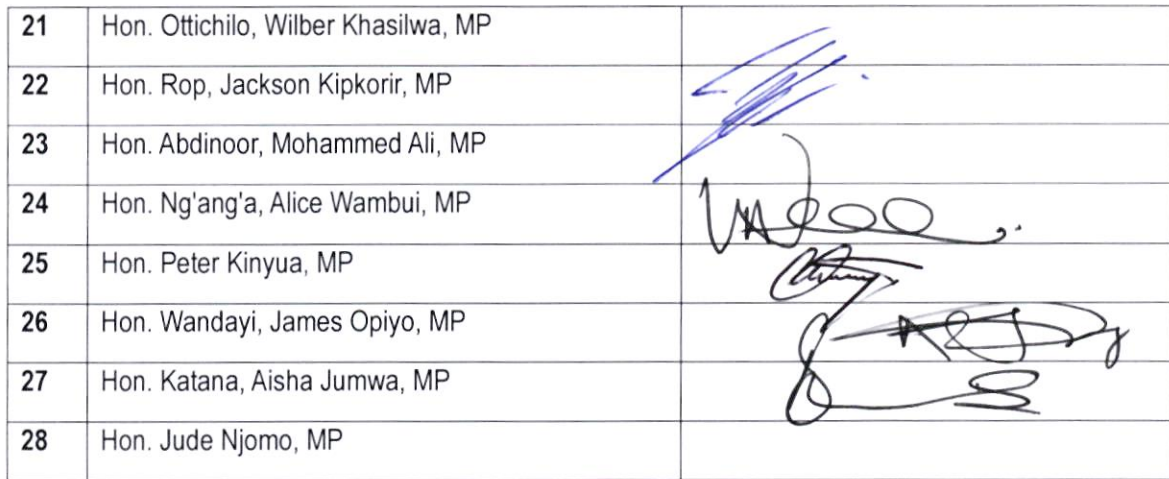 21 Hon. Ottichilo, Wilber Khasilwa, MP
22 Hon. Rop, Jackson Kipkorir, MP
23 Hon. Abdinoor, Mohammed Ali, MP
24 Hon. Ng'ang'a, Alice Wambui, MP
25 Hon. Peter Kinyua, MP
26 Hon. Wandayi, James Opiyo, MP
27 Hon. Katana, Aisha Jumwa, MP
28 Hon. Jude Njomo, MP